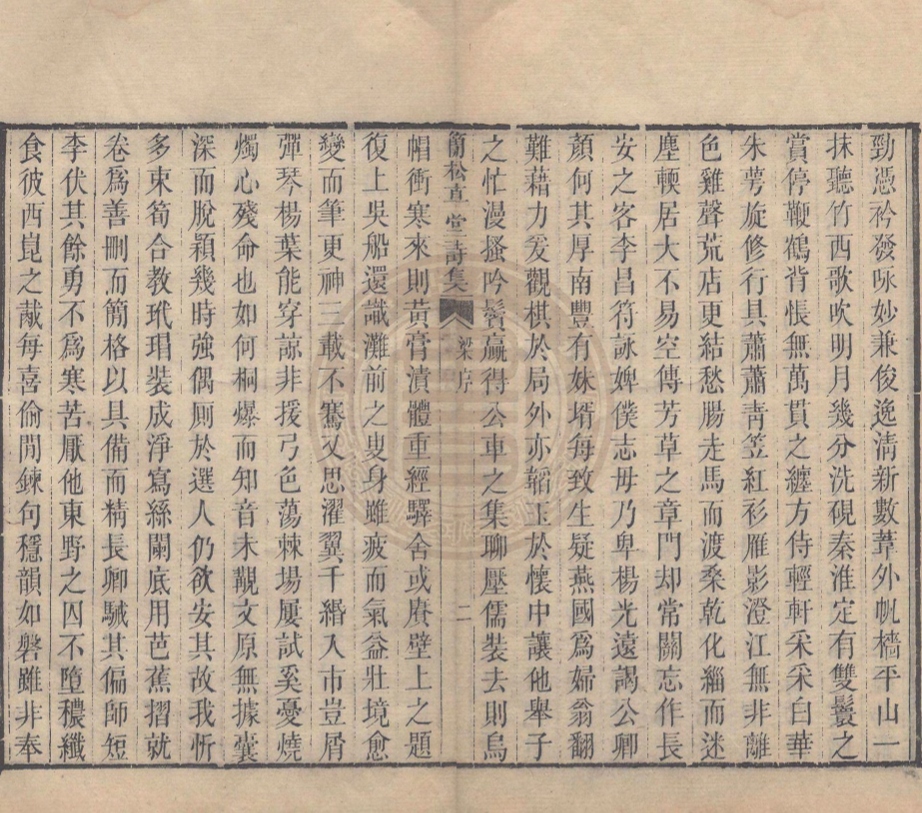 勁憑衿發咏妙兼俊逸清新數葦外帆檣平山一
抹聽竹西歌吹明月幾分洗硯秦淮定有雙鬟之
賞停鞭鶴背恨無萬貫之纏方侍輕軒采采白華
朱萼旋修行具蕭蕭青笠紅衫雁影澄江無非離
色雞聲荒店更結愁腸走馬而渡桑乾化緇而迷
塵輭居大不易空傳芳草之章門却常關忘作長
安之客李昌符詠婢僕志毋乃卑楊光遠謁公卿
顏何其厚南豐有妹壻每致生疑燕國爲婦翁翻
難藉力爰觀棋於局外亦韜玉於懷中讓他舉子
之忙漫搔吟鬢贏得公車之集聊壓儒裝去則烏
簡松草堂詩集 梁序 二
帽衝寒來則黃膏漬體重經驛舍或賡壁上之題
復上吳船還識灘前之叟身雖疲而氣益壯境愈
變而筆更神三載不騫又思濯翼千緡入市豈屑
彈琴楊葉能穿諒非援弓色蕩棘場屢試奚憂燒
燭心殘命也如何桐爆而知音未觀文原無據囊
深而脫穎幾時強偶厠於選人仍欲安其故我忻
多束筍合教玳瑁裝成淨寫絲闌底用芭蕉摺就
卷爲善刪而簡格以具備而精長卿駴其偏師短
李伏其餘勇不爲寒苦厭他東野之囚不墮穠纖
食彼西崑之胾每喜偷閒鍊句穩韻如磐雖非奉